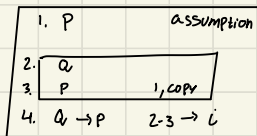 1. P assumption
2. Q
3. P 1, copy
4. Q → P 2-3 → i